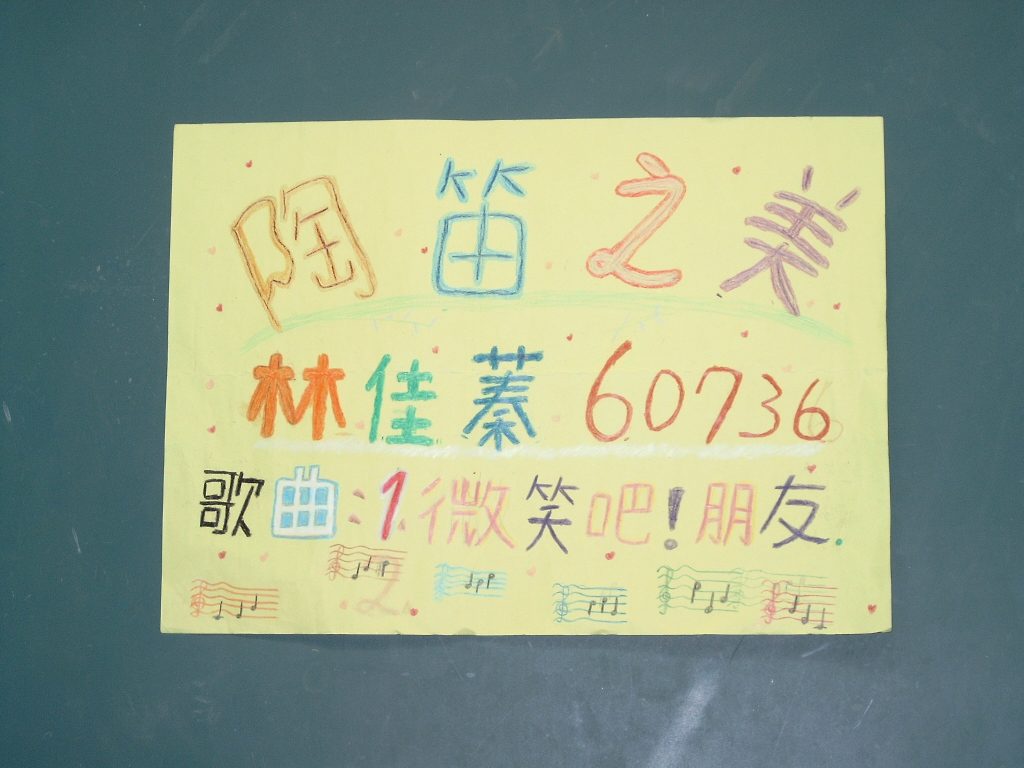 陶笛之美
林佳蓁 60736
歌曲:1微笑吧!朋友.
2.